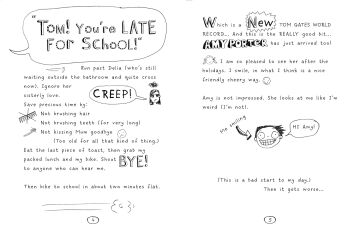 "TOM! YOU'RE LATE
FOR SCHOOL!"
Run past Delia (who's still
waiting outside the bathroom and quite cross
now). Ignore her
sisterly love.
CREEP!
Save precious time by:
Not brushing hair
Not brushing teeth (for very long)
Not kissing Mum goodbye
(Too old for all that kind of thing.)
Eat the last piece of toast, then grab my
packed lunch and my bike. Shout BYE!
to anyone who can hear me.
Then bike to school in about two minutes flat.
4
Which is a New TOM GATES WORLD
RECORD... And this is the REALLY good bit...
AMY PORTER has just arrived too!
I am so pleased to see her after the
holidays. I smile, in what I think is a nice
friendly cheery way.
Amy is not impressed. She looks at me like I'm
weird (I'm not).
Me smiling
Hi Amy!
(This is a bad start to my day.)
Then it gets worse...
5